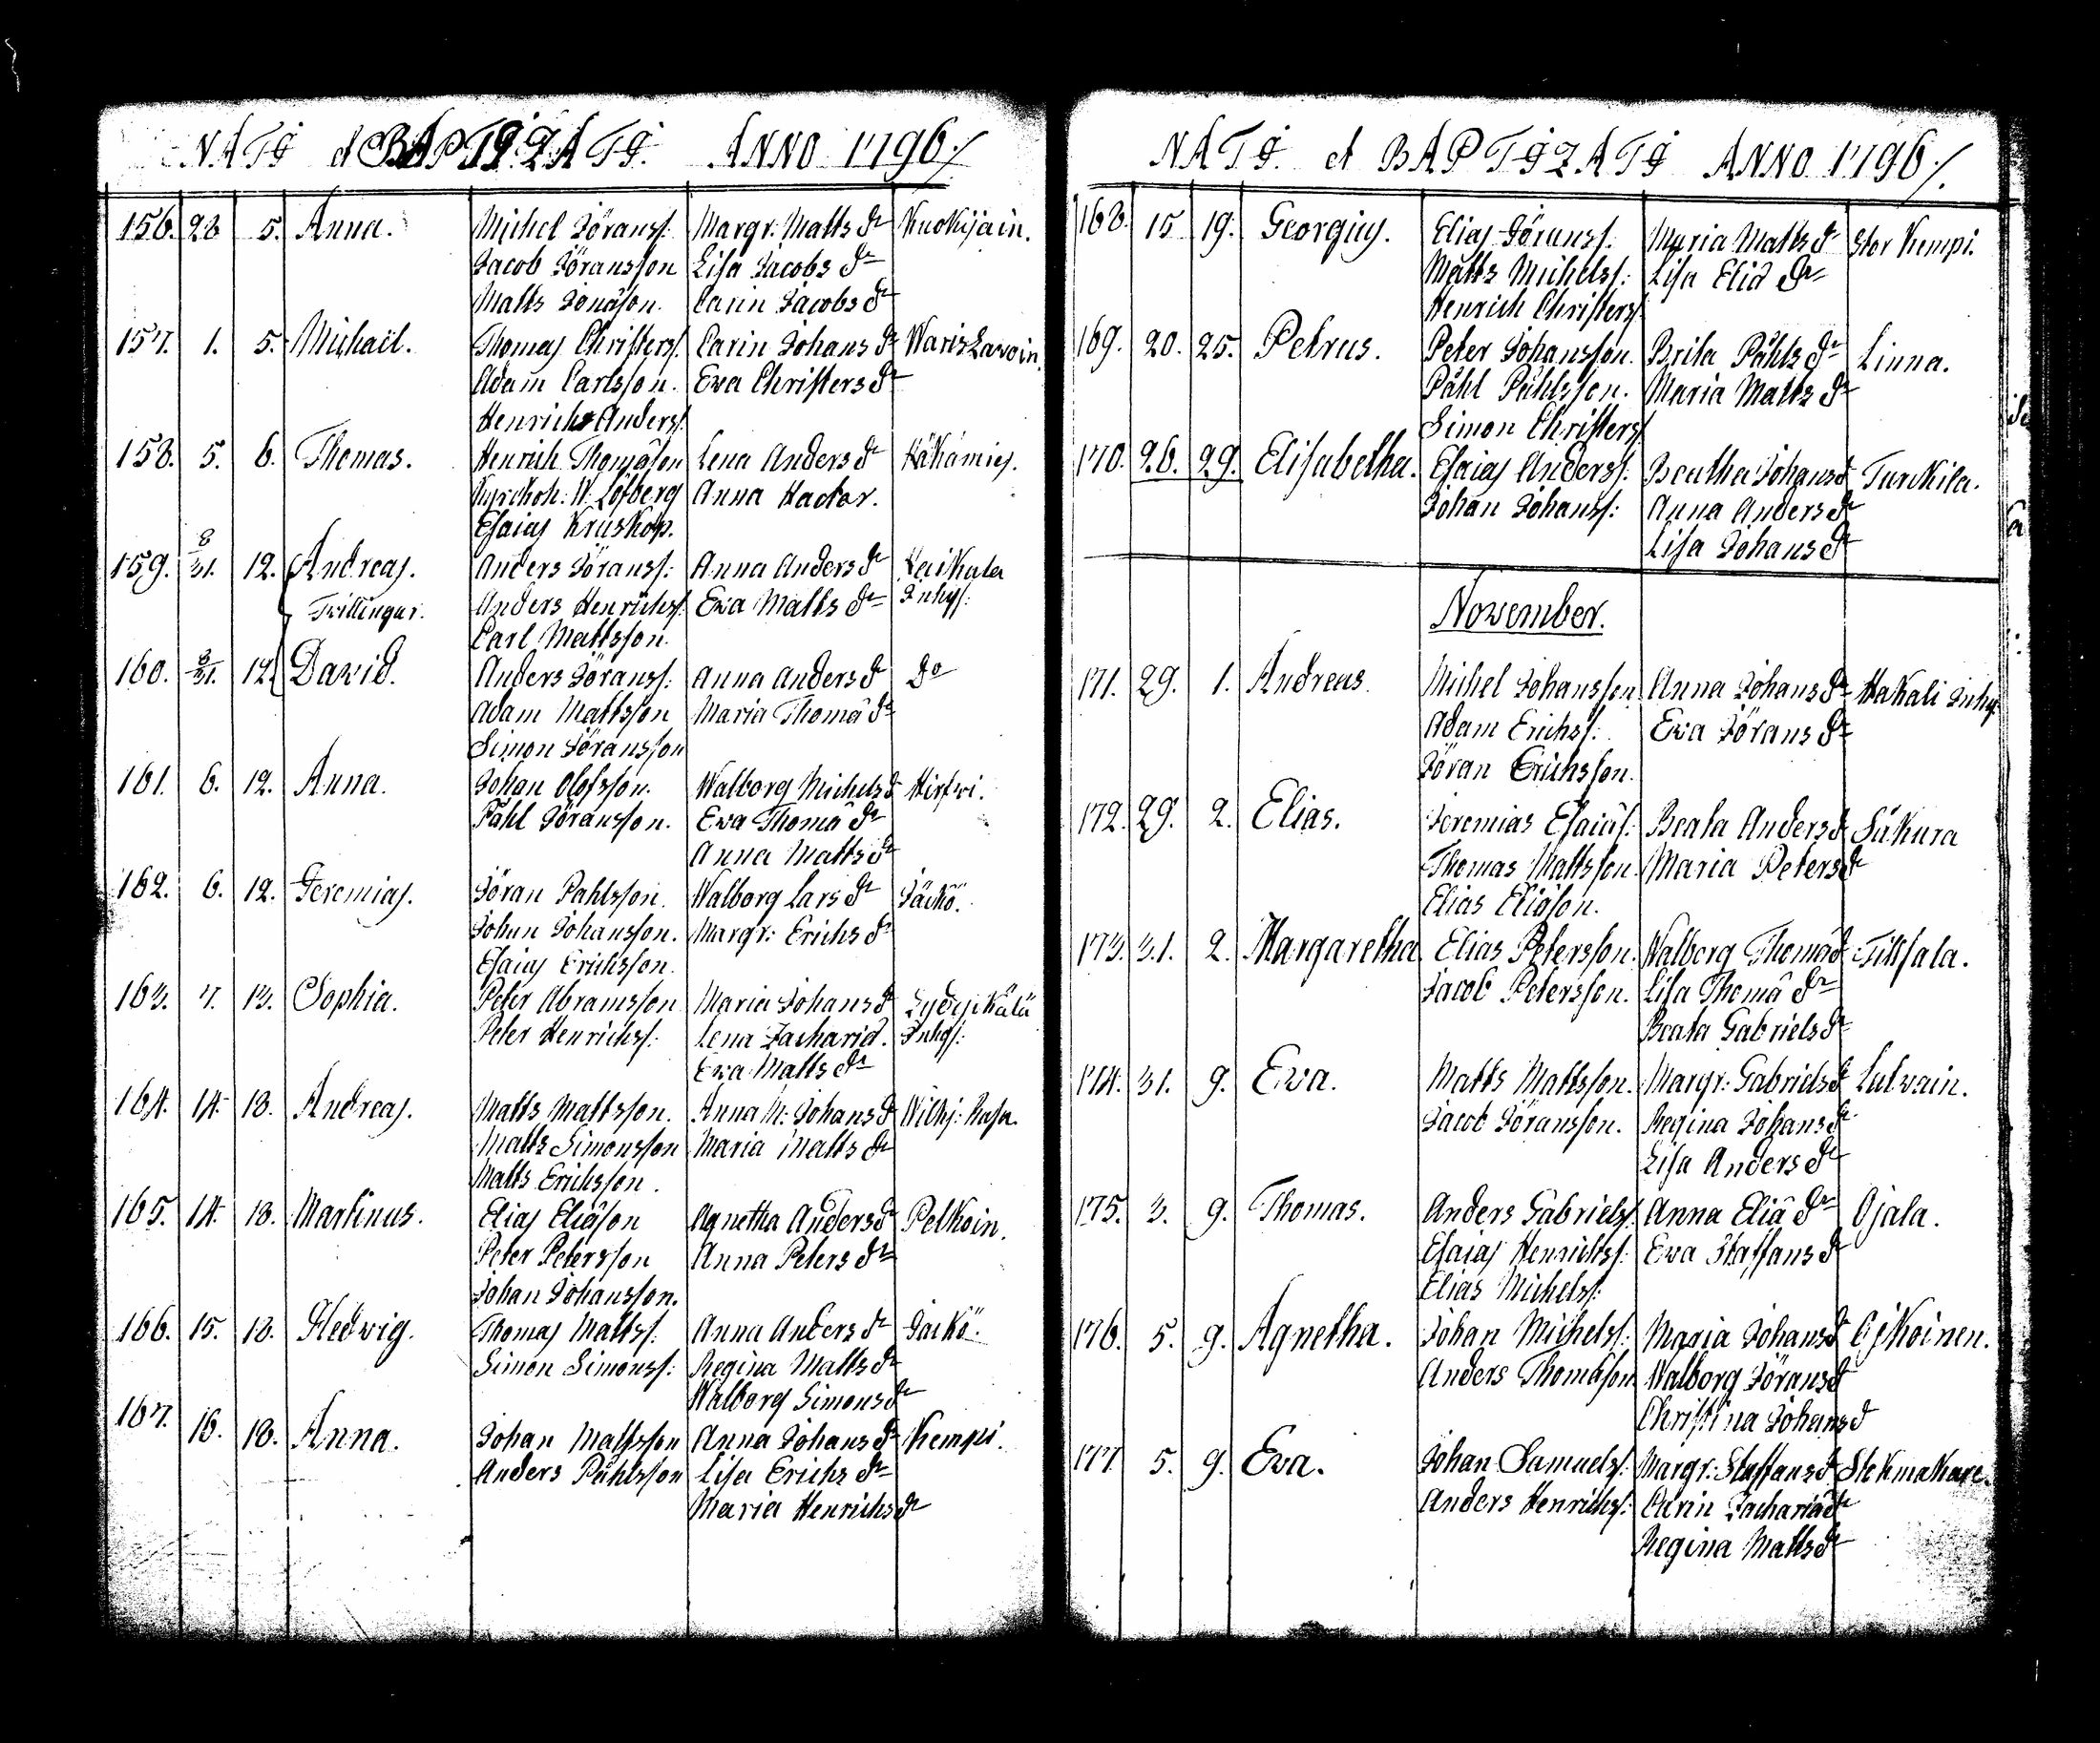 NATI et BAPTIZATI. ANNO 1796./.
156. 28 5. Anna. Michel Jöranss: Margr: Matts dr Kuokijain.
Jacob Jöransson Lisa Jacobs dr
Matts Jonāson. Carin Jacobs dr
157. 1. 5. Michaël. Thomas Christers: Carin Johans dr
Adam Carlsson. Eva Christers dr
Henrich Anders:
158. 5. 6. Thomas. Henrich Thomāson Lena Anders dr
W. Löfberg Anna Hactor.
Esaias Kruskop.
159. 8/31. 12. Andreas. Anders Jöranss: Anna Anders dr Leikala
Tvillingar. Anders Henrichs: Ewa Matts dr Inhys:
Carl Mattsson.
160. 8/31. 12. David. Anders Jöranss: Anna Anders dr do
Adam Mattsson Maria Thomā dr
Simon Jöransson
161. 6. 12. Anna. Johan Olofsson. Walborg Michels dr Hirfwi.
Påhl Jöransson. Ewa Thomā dr
Anna Matts dr
162. 6. 12. Jeremias. Jöran Pahlsson. Walborg Lars dr Jäckö.
Johan Johansson. Margr: Erichs dr
Esaias Erichsson.
163. 7. 13. Sophia. Peter Abramsson Maria Johans dr
Peter Henrichs: Lena Zacharid. Inhys:
Ewa Matts dr
164. 14. 18. Andreas. Matts Mattsson. Anna M: Johans dr
Matts Simonsson Maria Matts dr
Matts Erichsson.
165. 14. 18. Martinus. Elias Eliāson Agnetha Anders dr Pelkoin.
Peter Petersson Anna Peters dr
Johan Johansson.
166. 15. 18. Hedwig. Thomas Matts: Anna Anders dr Jäckö.
Simon Simonss: Regina Matts dr
Walborg Simons dr
167. 16. 18. Anna. Johan Mattsson Anna Johans dr Kempi.
Anders Påhlsson Lisa Erichs dr
Maria Henrichs dr
NATI. et BAPTIZATI ANNO 1796./.
168. 15 19. Georgius. Elias Jöranss: Maria Matts dr Stor Kempi.
Matts Michelss: Lisa Eliā dr
Henrich Christers:
169. 20. 25. Petrus. Peter Johansson. Brita Påhls dr Linna.
Påhl Påhlsson. Maria Matts dr
Simon Christers:
170. 26. 29. Elisabetha. Esaias Anderss: Beatha Johans dr Turckila.
Johan Johanss: Anna Anders dr
Lisa Johans dr
November.
171. 29. 1. Andreas. Michel Johansson Anna Johans dr Hakali Inhys
Adam Erichs: Ewa Jörans dr
Jöran Erichsson.
172. 29. 2. Elias. Jeremias Esaiās: Beata Anders dr Säkura
Thomas Mattsson. Maria Peters dr
Elias Eliāson.
173. 31. 2. Margaretha Elias Petersson. Walborg Thomā dr
Jacob Petersson. Lisa Thomā dr
Beata Gabriels dr
174. 31. 9. Eva. Matts Mattsson. Margr: Gabriels dr Lulwain.
Jacob Jöransson. Regina Johans dr
Lisa Anders dr
175. 3. 9. Thomas. Anders Gabriels: Anna Eliā dr Ojala.
Esaias Henrichs: Ewa Staffans dr
Elias Michels:
176. 5. 9. Agnetha. Johan Michels: Maria Johans dr Ojkoinen.
Anders Thomāson Walborg Jörans dr
Christina Johans dr
177. 5. 9. Eva. Johan Samuels: Margr: Staffans dr Stekmakare.
Anders Henrichs: Carin Zachariā dr
Regina Matts dr